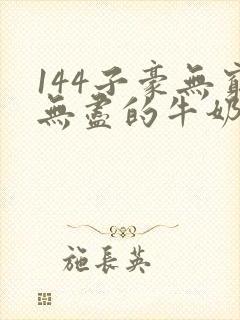 144子豪無窮
無盡的牛奶
施長英